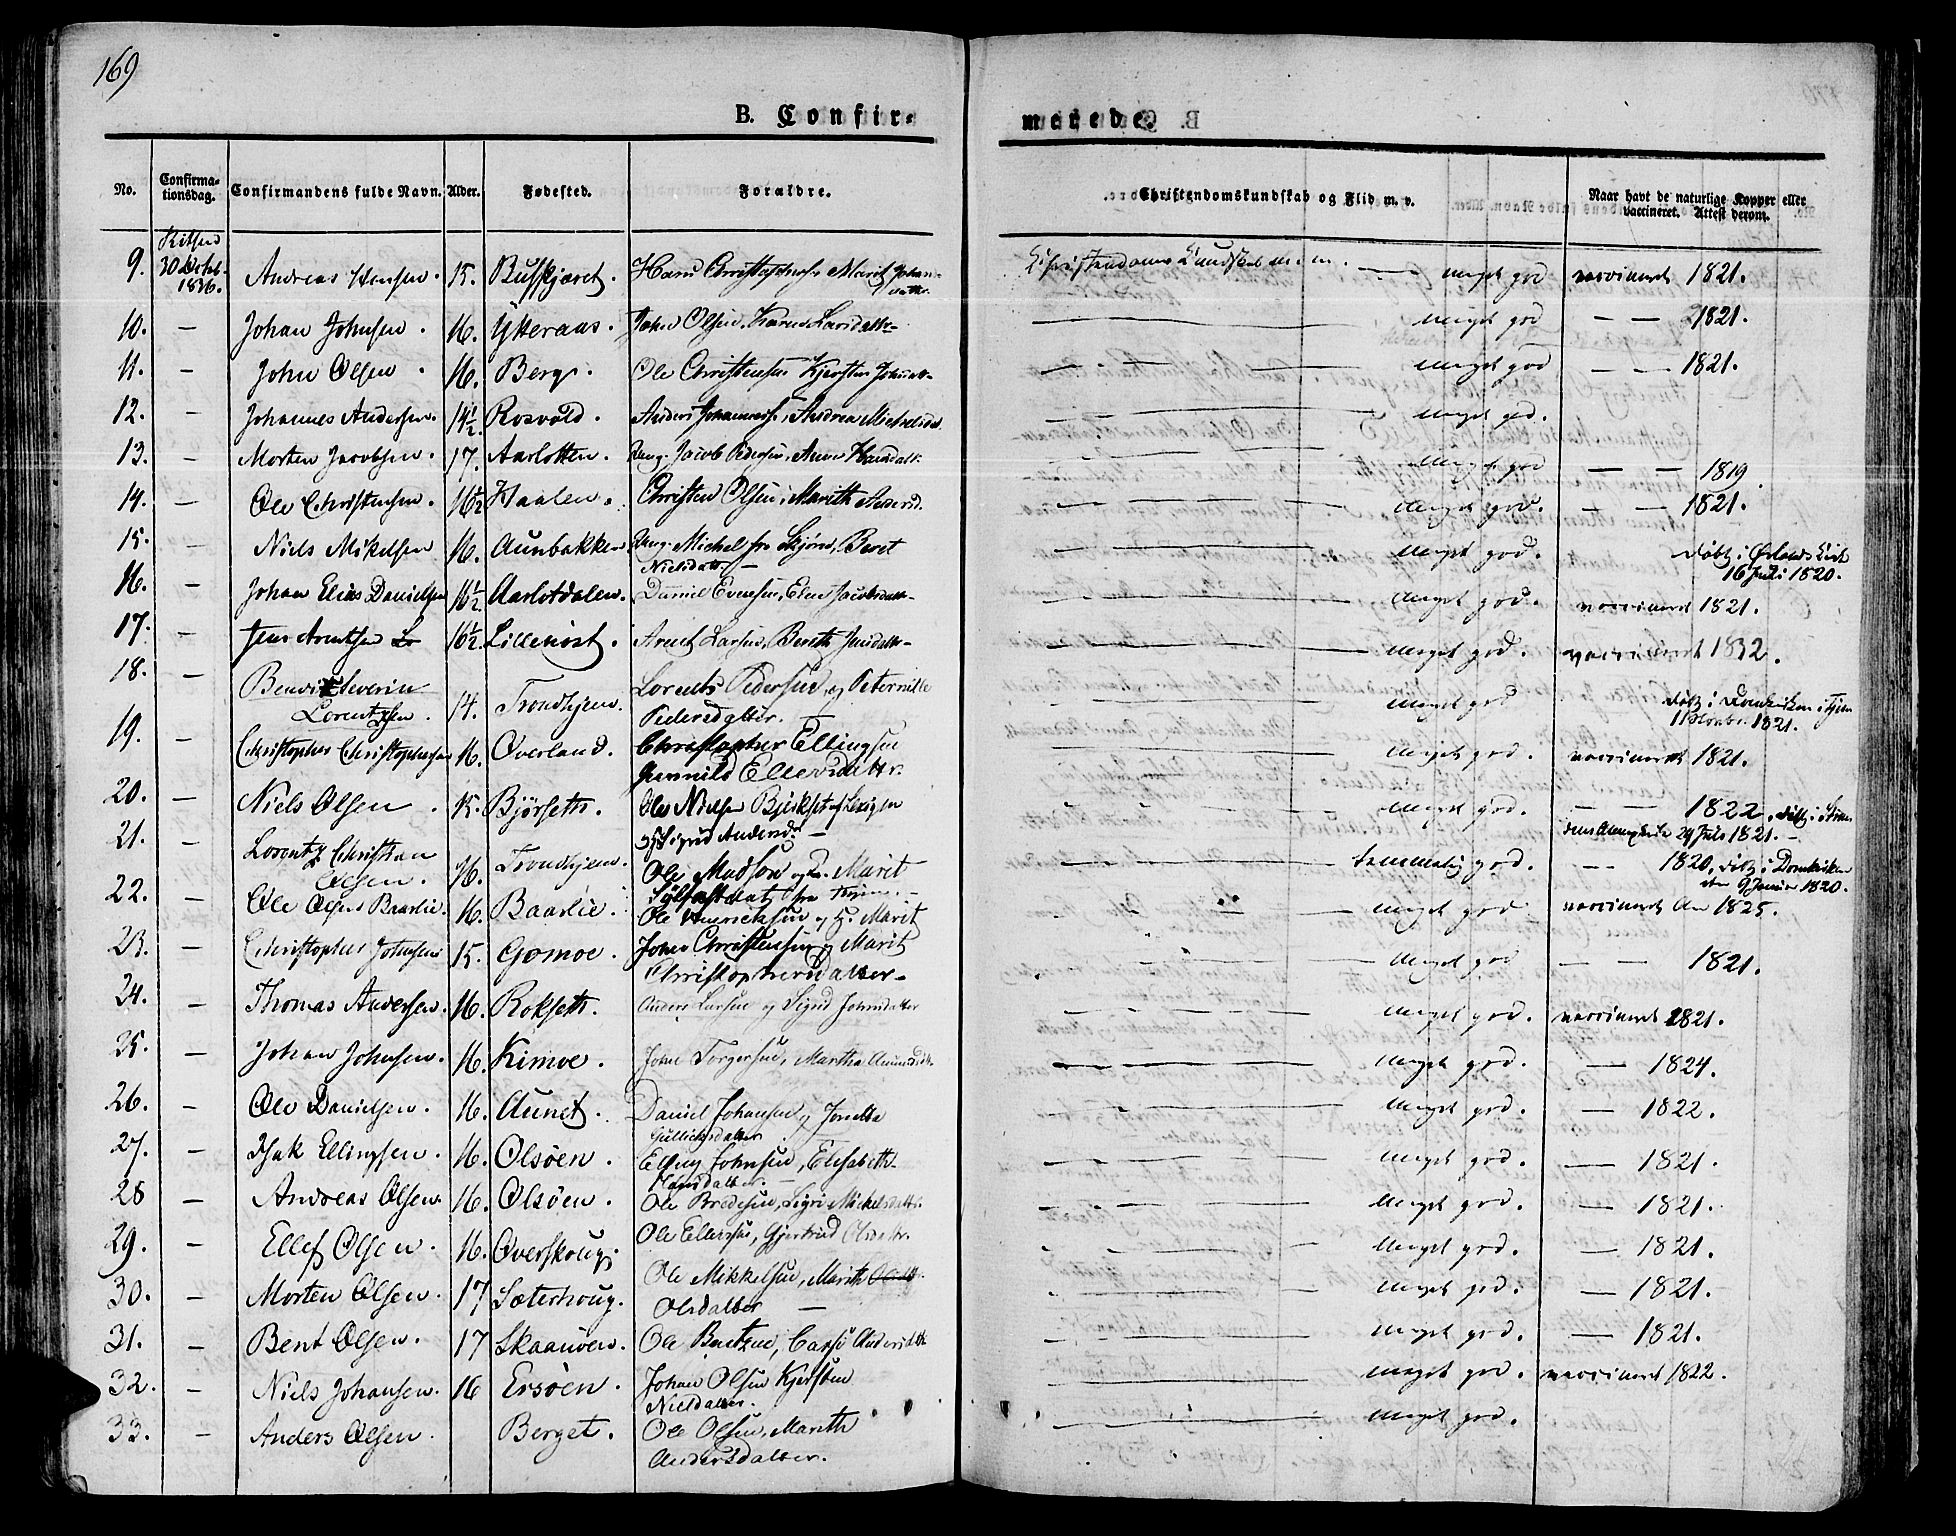 169
B. Confirmerede.
No. Confirmationsdag. Confirmandens fulde Navn. Alder. Fødested. Forældre. Christendomskundskab og Flid m. v. Naar havt de naturlige Kopper eller vaccineret. Attest derom.
9. 30 Octob. 1836. Andreas Hansen 15. Hans Christophers. Marit Johan- Christendoms Kundskab m. m. — meget god vaccineret 1821.
10. — Johan Johnsen. 16. Ytteraas. John Olsen, Karen Larsdatt- — meget god — — 1821.
11. — John Olsen. 16. Berg. Ole Christensen Kjersten — meget god — — 1821.
12. — Johannes Andersen. 14½. Rosvold. Anders Johanness., Andrea — meget god.
13. — Morten Jacobsen. 17. Aarlotten. Ung. Jacob Pedersen, Anne Hansdatt. — meget god — — 1819.
14. — Ole Christensen. 16½ Haalen. Christen Olsen, Marith Andersd. — meget god. — — 1821.
15. — Niels Mikelsen 16. Aunbakken Ung. Michel fra Skjørn, Beret — meget god. døbt i Ørlands Kirke
Nielsdatt. — 16 Juli 1820.
16. — Johan Elias Danielsen 16½ Aarlotdalen. Daniel Evensen, Elen Jacobsdatt- — meget god. vaccineret 1821.
17. — Jens Arentsen 16½. Lillemost. Arent Larsen, Bereth Jensdatt- — meget god. vaccineret 1832.
18. — Severin 14. Trondhjem. Lorents Pedersen, og Peternille — meget god døbt i Domkirken i Thjem
Lorentzsen. Pedersdatter. — 1821.
19. — Christopher Christophersen 16. Overland. Christopher Ellingsen — meget god. vaccineret 1821.
Gunnild Ellevsdattr.
20. — Niels Olsen. 15. Bjørseth. Ole Nielsen — meget god. — — 1822, døbt i
og Sigrid Andersd. — 29 Juli 1821. —
21. Lorentz Christian 16. Trondhjem. Ole Madsen og Marit — temmelig god. — — 1820, døbt i Domkirken
Olsen. fra — den 9 Januar 1820.
22. — Ole Olsen Baarlie 16. Baarlie. Ole Henricksen og H. Marit — meget god vaccineret den 1825.
23. — Christopher Johnsen 15. Gomoe. John Christensen og Marit — meget god — — 1821.
Christophersdatter-
24. — Thomas Andersen. 16. Rokseth. Anders Larsen og Sigrid Johnsdatter — meget god. vaccineret 1821.
25. — Johan Johnsen. 16. Kimoe. John Torgersen, Martha — meget god. — 1824.
26. — Ole Danielsen. 16. Aunet. Daniel Johansen og Jonetta — meget god. — 1822.
Gullichsdatter
27. — Isak Ellingsen. 16. Olsöen. Elling Johnsen, Elisabeth — meget god. — 1821.
Olsdatter. —
28 — Andreas Olsen. 16. Olsöen. Ole Bredesen, Sigri Mickelsdatt. — meget god. — 1821.
29. — Ellef Olsen. 16. Overskoug. Ole Ellefsen, Gjertrud — meget god. — 1821.
30. — Morten Olsen. 17 Sæterhoug. Ole Mikkelsen, Marith — meget god. — 1821.
Olsdatter —
31. — Bent Olsen. 17 Skaanöen. Ole Bentzen, Andersdtt — meget god. — 1821.
32. — Niels Johansen. 16 Ersöen. Johan Olsen Kjersten — meget god. vaccineret 1822.
Nielsdatter.
33. — Anders Olsen. Berget. Ole Olsen, Marith — meget god.
Andersdatter.